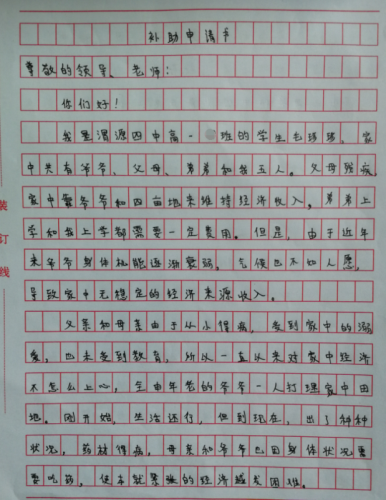 补助申请书
尊敬的领导、老师:
你们好!
我是渭源四中高一 班的学生毛 ,家
中共有爷爷、父母、弟弟和我五人。父母残疾,
家中靠爷爷和四亩地来维持经济收入。弟弟上
学和我上学都需要一定费用。但是,由于近年
来爷爷身体机能逐渐衰弱。气候也不如人愿,
导致家中无稳定的经济来源收入。
父亲和母亲由于从小得病,受到家中的溺
爱,也未受到教育,所以一直以来对家中经济
不怎么上心,全由年老的爷爷一人打理家中田
地。刚开始,生活还行,但到现在,出了种种
状况,药材得病,母亲和爷爷也因身体状况需
要吃药,使本就紧张的经济越来困难。
装
订
线